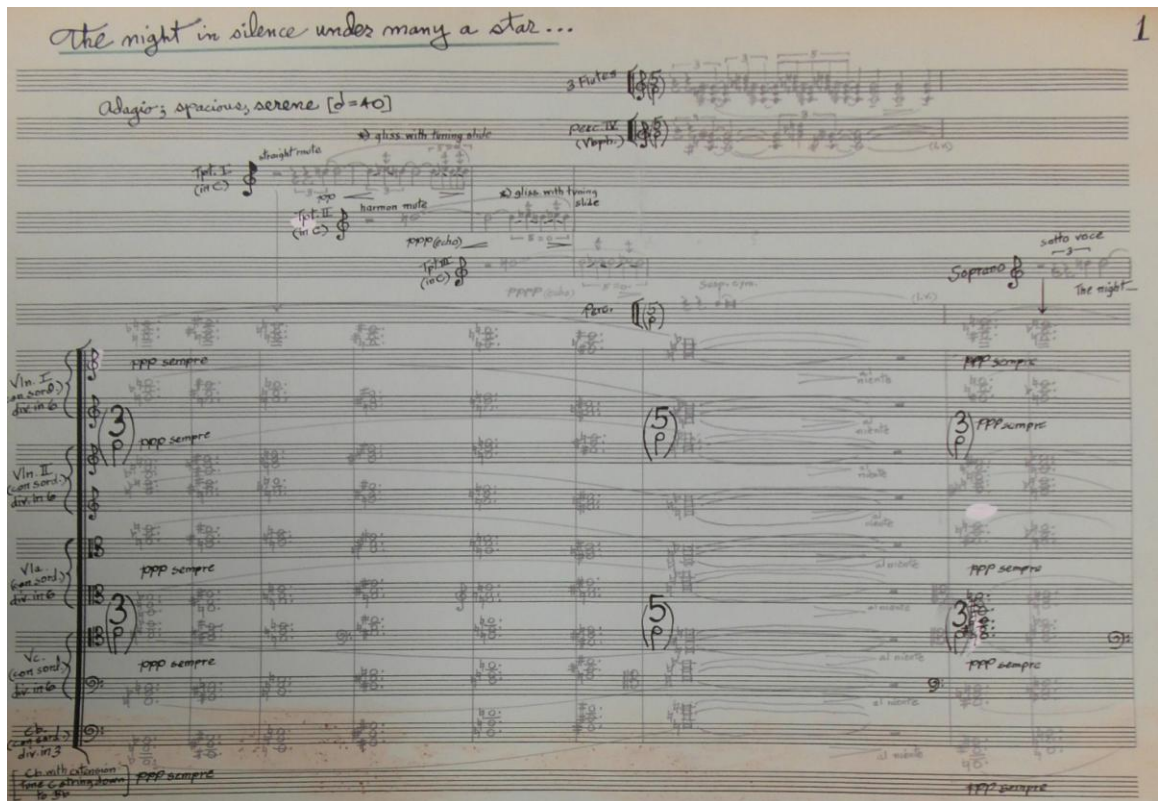 The night in silence under many a star...
1
3 Flutes
Adagio; spacious, serene [𝅗𝅥=40]
Perc. IV
(Vbph.)
*) gliss. with tuning slide
straight mute
Tpt. I
(in C)
ppp
*) gliss. with tuning
slide
harmon mute
Tpt. II
(in C)
ppp (echo)
Tpt. III
(in C)
pppp (echo)
sotto voce
3
Soprano
The night
Susp. cym.
Perc.
Vln. I
(con sord.)
div. in 6
ppp sempre
ppp sempre
al
niente
3
5
3
ppp sempre
ppp sempre
al
niente
Vln. II
(con sord.)
div. in 6
al
niente
al
niente
Vla.
(con sord.)
div. in 6
ppp sempre
al niente
ppp sempre
3
5
3
al niente
Vc.
(con sord.)
div. in 6
ppp sempre
al niente
ppp sempre
al niente
Cb.
(con sord.)
div. in 3
al niente
[Cb. with extension
Tune C string down
to Bb]
ppp sempre
ppp sempre